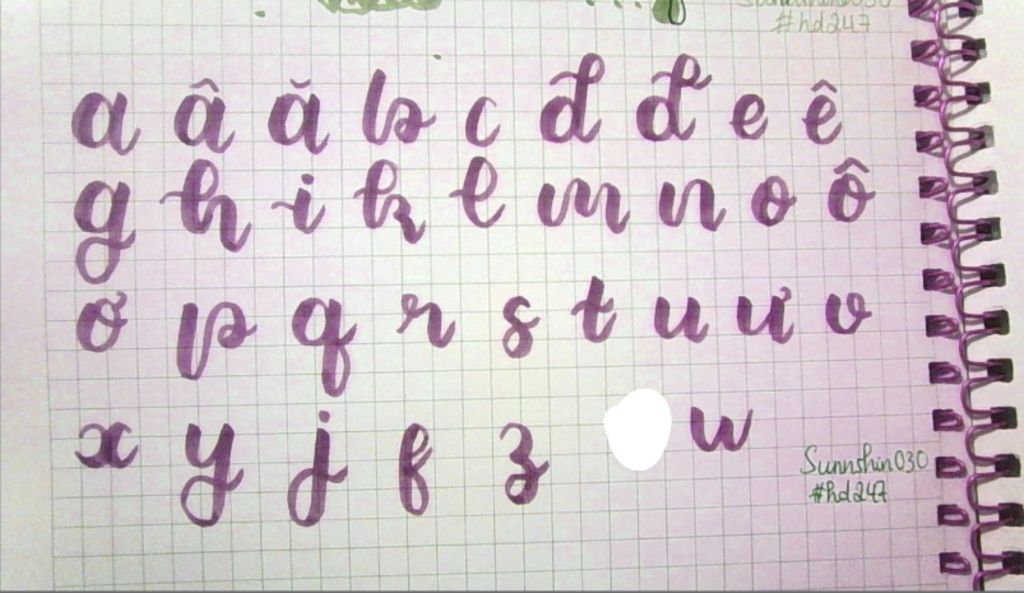 #hd247
a â ă b c d đ e ê
g h i k l m n o ô
ơ p q r s t u ư v
x y j f z w
Sunnshin030
#hd247